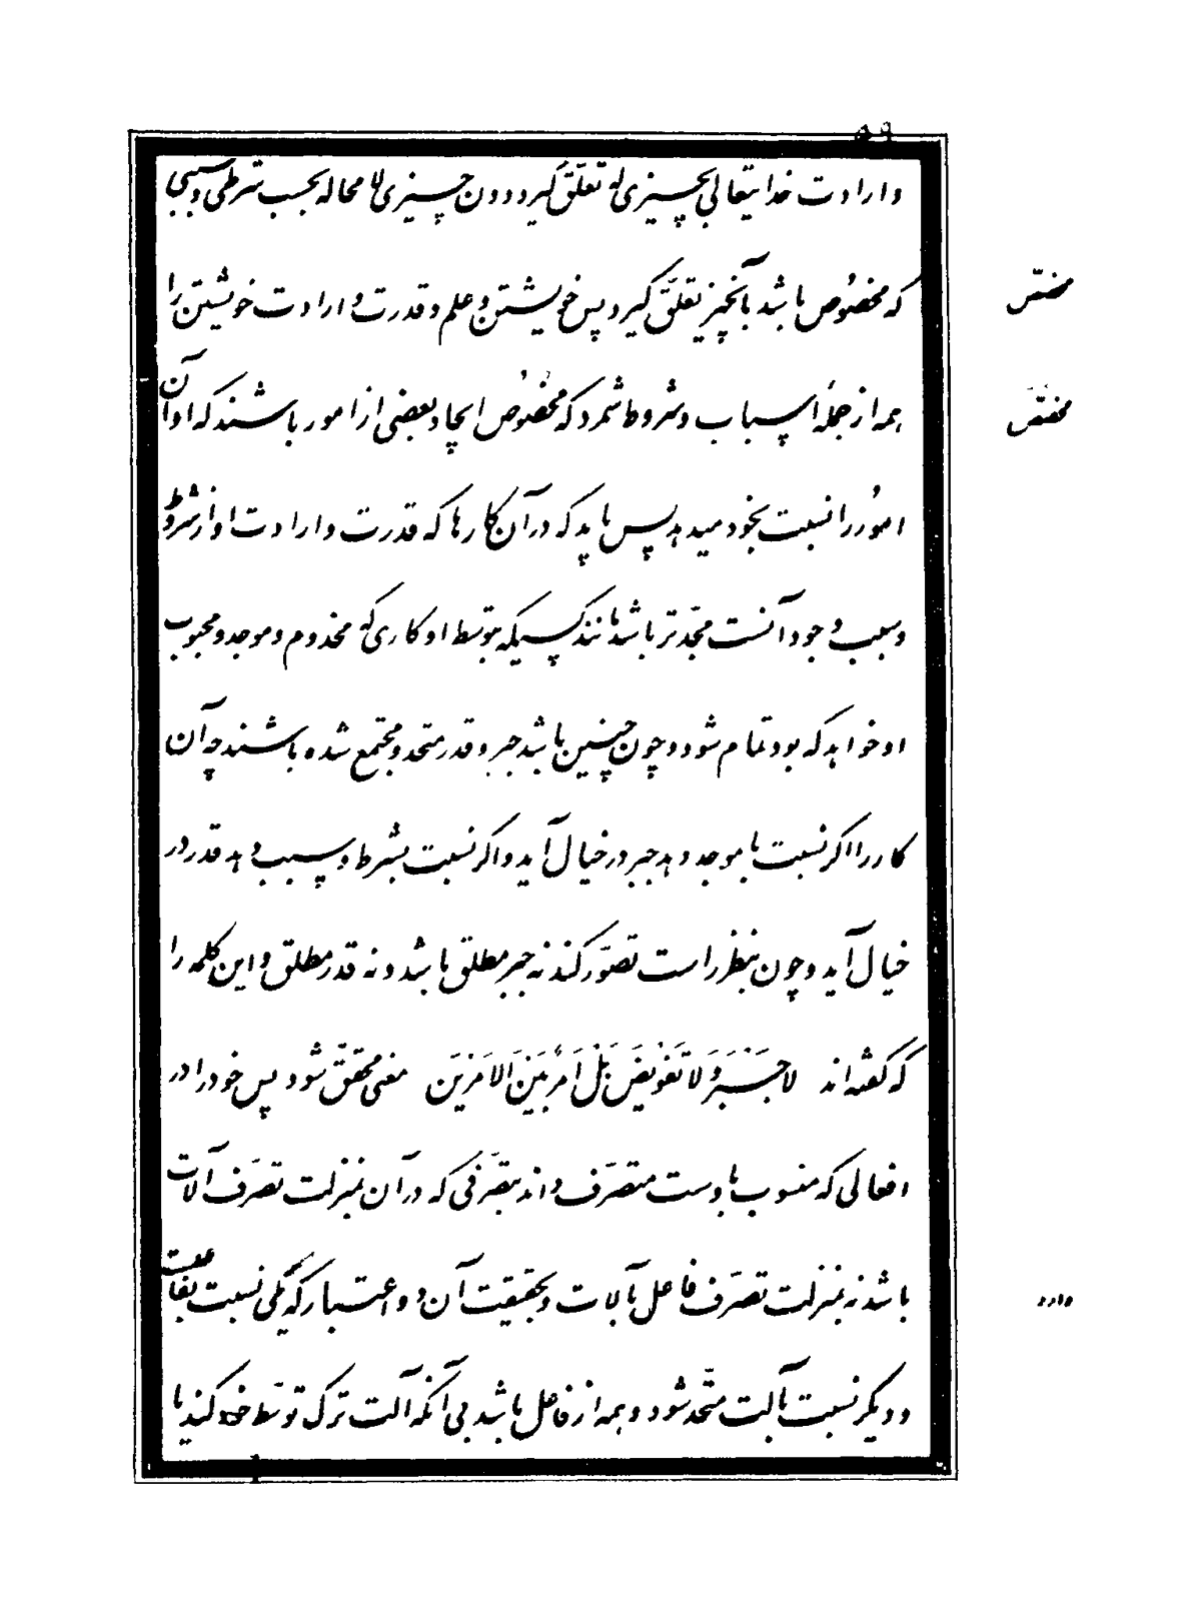 ۵۹
وارادت خدایتعالی بچیزی که تعلّق گیرد و دون چیزی لا محاله بحسب شرطی و سببی
که مخصوص باشد بآنچیز تعلّق گیرد پس خویشتن و علم و قدرت و ارادت خویشتن را
مختصّ
همه از جملهٔ اسباب و شروط شمرد که مخصوص ایجاد بعضی از امور باشند که او آن
مختصّ
امور را نسبت بخود میدهد پس باید که در آن کارها که قدرت و ارادت او از شروط
و سبب وجود آنست مجدّتر باشد مانند کسیکه بتوسط او کاری که مخدوم و موجد و محبوب
او خواهد که بود تمام شود و چون چنین باشد جبر و قدر متحد و مجتمع شده باشند چه آن
کار را اگر نسبت با موجد دهد جبر در خیال آید و اگر نسبت بشرط و سبب دهد قدر در
خیال آید و چون بنظر راست تصوّر کند نه جبر مطلق باشد و نه قدر مطلق و این کلمه را
که گفته‌اند لا جَبْرَ وَ لا تَفْویضَ بَلْ اَمْرٌ بَیْنَ الاَمْرَیْنِ معنی محقّق شود پس خود را در
افعالی که منسوب باوست متصرّف داند بتصرّفی که در آن بمنزلت تصرّف آلات
باشد نه بمنزلت تصرّف فاعل بآلات و بحقیقت آن دو اعتبار که یکی نسبت بفاعلست
دارد
و دیگر نسبت بآلت متّحد شود و همه از فاعل باشد بی آنکه آلت ترک توسّط خود کند یا